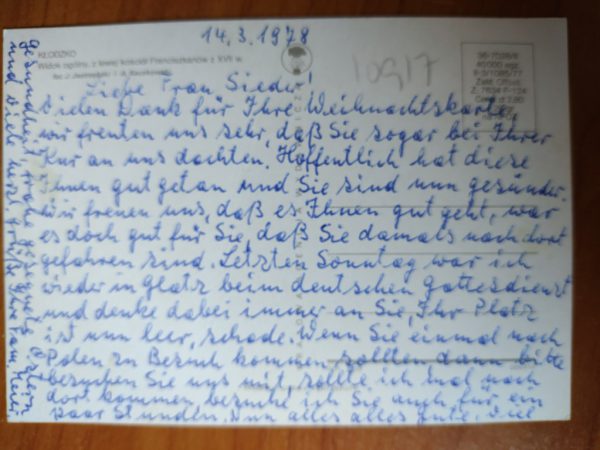 14.3.1978
KŁODZKO
Widok ogólny, z lewej kościół Franciszkanów z XVII w.
10917
Liebe Frau Sieder!
Vielen Dank für Ihre Weihnachtskarte
wir freuten uns sehr, daß Sie sogar bei Ihrer
Kur an uns dachten. Hoffentlich hat diese
Ihnen gut getan und Sie sind nun gesünder.
Wir freuen uns, daß es Ihnen gut geht, war
es doch gut für Sie, daß Sie damals nach dort
gefahren sind. Letzten Sonntag war ich
wieder in Glatz beim deutschen Gottesdienst
und denke dabei immer an Sie, Ihr Platz
ist nun leer, schade. Wenn Sie einmal nach
Polen zu Besuch kommen sollten dann bitte
besuchen Sie uns mit, sollte ich mal nach
dort kommen besuche ich Sie auch für ein
paar Stunden. Nun alles alles gute. Viel
Gesundheit, frohe gesegnete Ostern
und viele herzl. Grüße